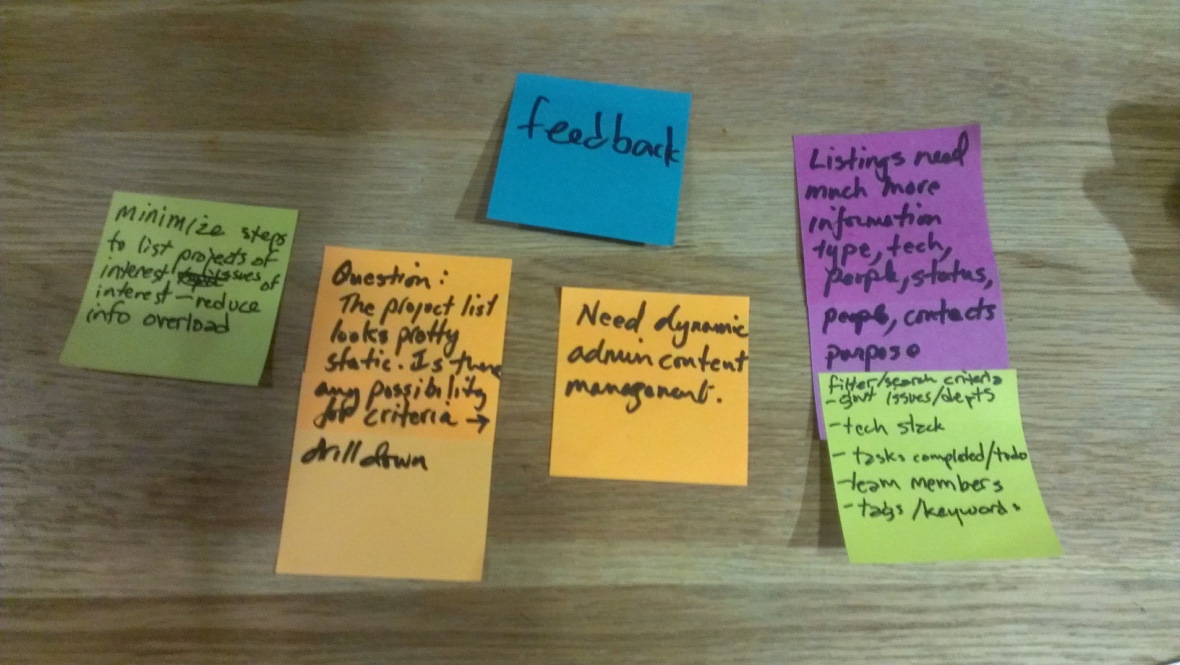 feedback
minimize steps
to list projects of
interest / issues of
interest – reduce
info overload
Question:
The project list
looks pretty
static. Is there
any possibility
for criteria →
drill down
Need dynamic
admin content
management.
Listings need
much more
information
type, tech,
people, status,
people, contacts
purpose
filter/search criteria
- gov't issues/depts
- tech stack
- tasks completed/todo
- team members
- tags/keywords